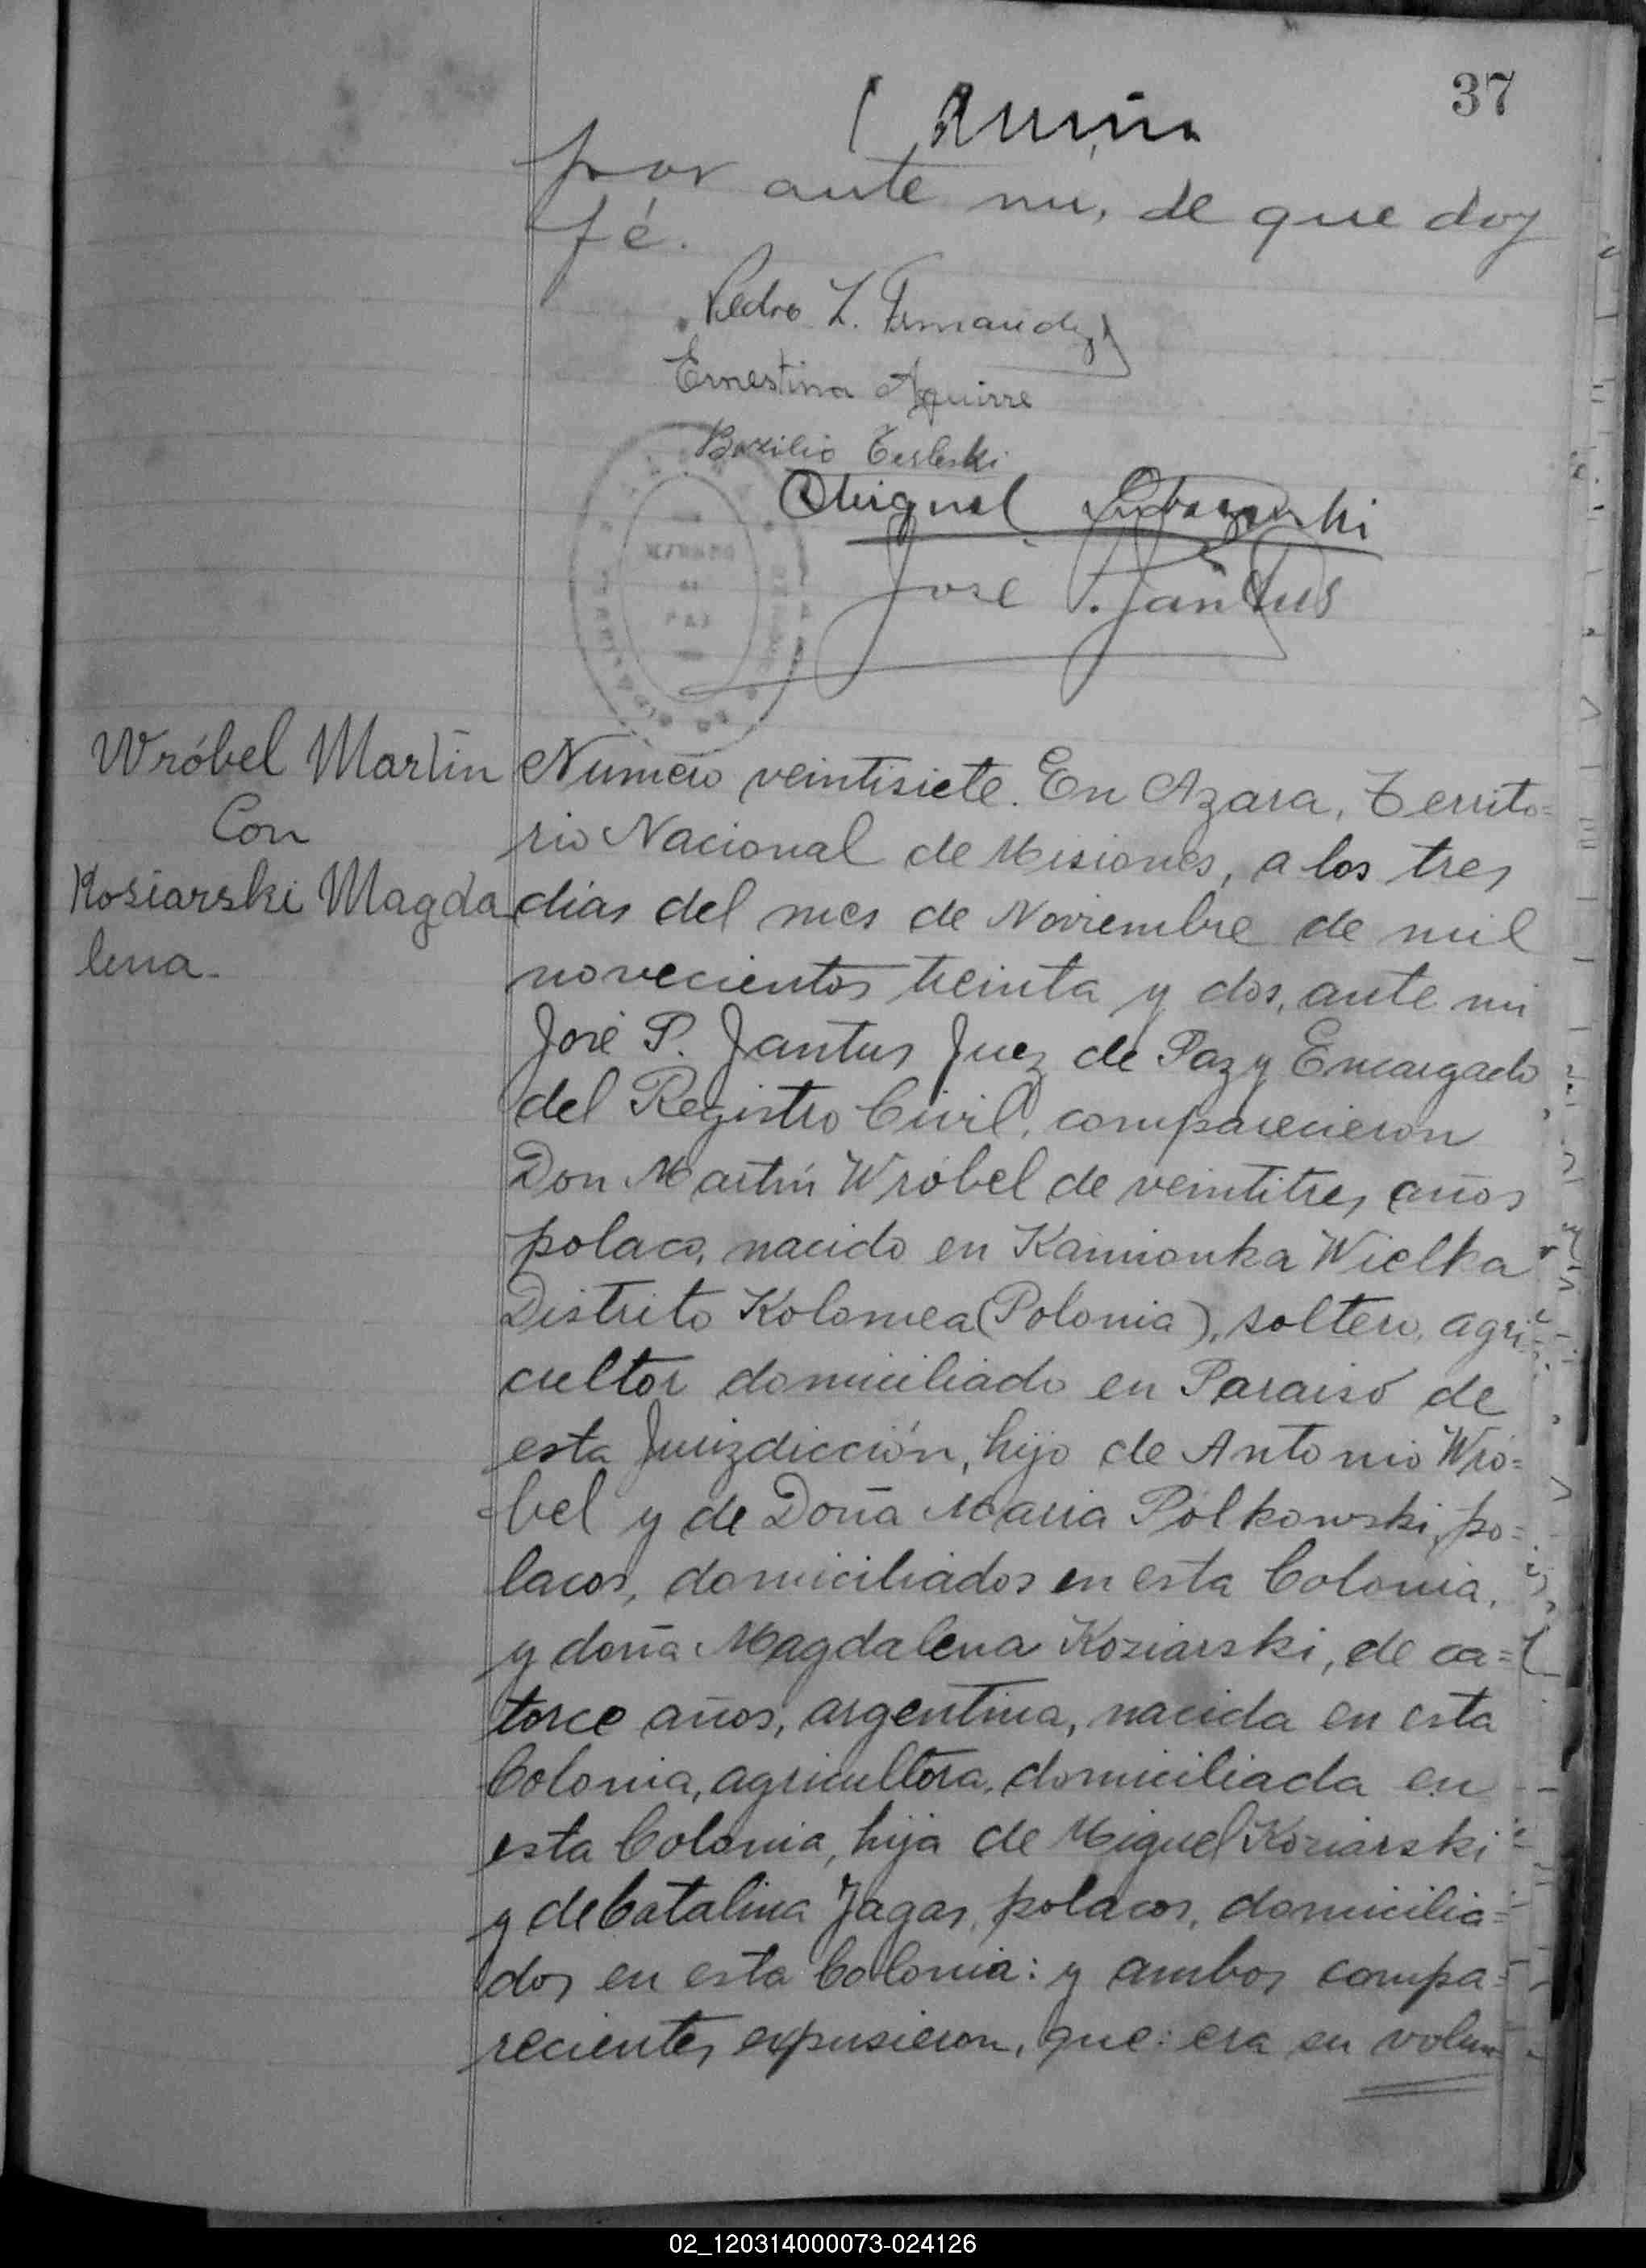 37
por ante mi, de que doy
fé.
Pedro L. Fernandez
Ernestina Aguirre
Bazilio Terleski
Miguel
José P. Jantus
JUZGADO
DE
PAZ
Wróbel Martín
Con
Kosiarski Magda
lena-
Número veintisiete. En Azara, Territo=
rio Nacional de Misiones, a los tres
dias del mes de Noviembre de mil
novecientos treinta y dos, ante mi
José P. Jantus Juez de Paz y Encargado
del Registro Civil, comparecieron
Don Martín Wróbel de veintitres años
polaco, nacido en Kamionka Wielka
Distrito Kolomea (Polonia), soltero, agri
cultor domiciliado en Paraiso de
esta Jurizdicción, hijo de Antonio Wró=
bel y de Doña Maria Polkowski, po=
lacos, domiciliados en esta Colonia,
y doña Magdalena Koziarski, de ca=
torce años, argentina, nacida en esta
Colonia, agricultora, domiciliada en
esta Colonia, hija de Miguel Koziarski
y de Catalina Jagas, polacos, domicilia=
dos en esta Colonia: y ambos compa=
recientes expusieron, que: era su volun
02_120314000073-024126